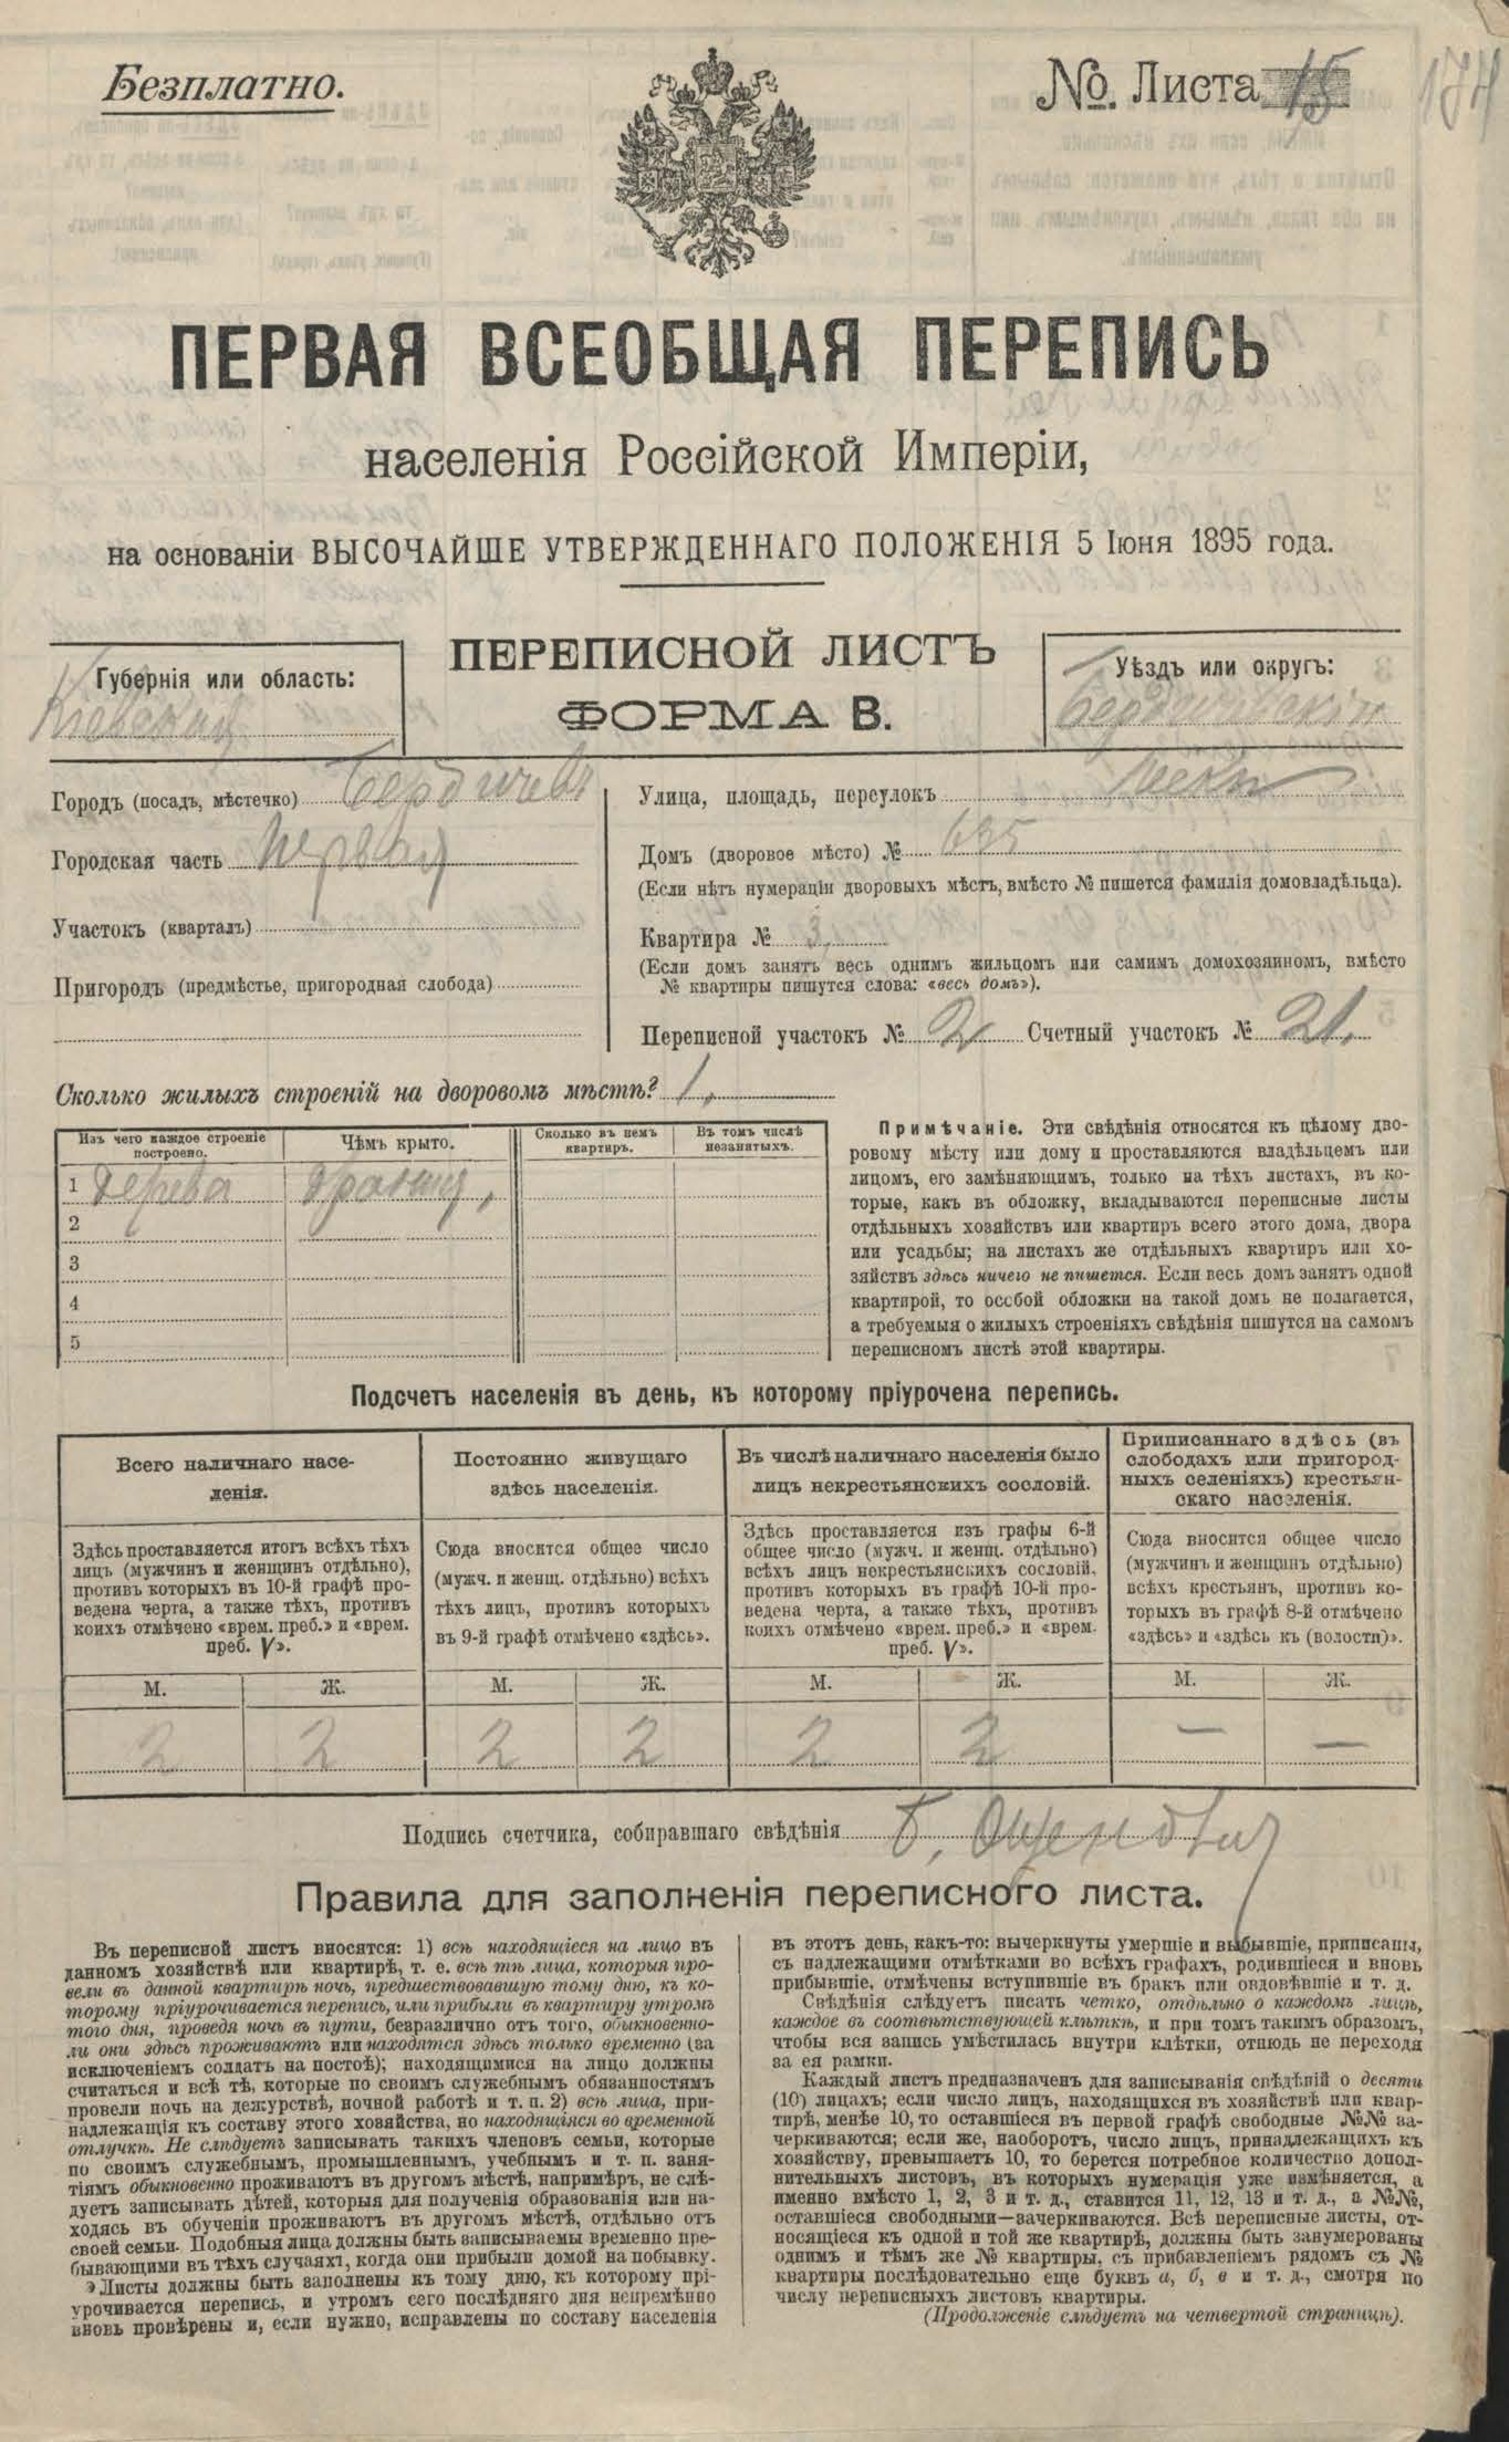 Безплатно.
№. Листа 15
174
ПЕРВАЯ ВСЕОБЩАЯ ПЕРЕПИСЬ
населенія Россійской Имперіи,
на основаніи ВЫСОЧАЙШЕ УТВЕРЖДЕННАГО ПОЛОЖЕНІЯ 5 Іюня 1895 года.
ПЕРЕПИСНОЙ ЛИСТЪ
ФОРМА В.
Губернія или область:
Кіевская
Уѣздъ или округъ:
Бердичевскій
Городъ (посадъ, мѣстечко) Бердичевъ
Городская часть Первая
Участокъ (кварталъ)
Пригородъ (предмѣстье, пригородная слобода)
Улица, площадь, переулокъ
Домъ (дворовое мѣсто) № 635
(Если нѣтъ нумераціи дворовыхъ мѣстъ, вмѣсто № пишется фамилія домовладѣльца).
Квартира № 3,
(Если домъ занятъ весь однимъ жильцомъ или самимъ домохозяиномъ, вмѣсто
№ квартиры пишутся слова: «весь домъ»).
Переписной участокъ № 2, Счетный участокъ № 21,
Сколько жилыхъ строеній на дворовомъ мѣстѣ? 1,
Изъ чего каждое строеніе
построено.
Чѣмъ крыто.
Сколько въ немъ
квартиръ.
Въ томъ числѣ
незанятыхъ.
1 дерева дранью,
2
3
4
5
Примѣчаніе. Эти свѣдѣнія относятся къ цѣлому дво-
ровому мѣсту или дому и проставляются владѣльцемъ или
лицомъ, его замѣняющимъ, только на тѣхъ листахъ, въ ко-
торые, какъ въ обложку, вкладываются переписные листы
отдѣльныхъ хозяйствъ или квартиръ всего этого дома, двора
или усадьбы; на листахъ же отдѣльныхъ квартиръ или хо-
зяйствъ здѣсь ничего не пишется. Если весь домъ занятъ одной
квартирой, то особой обложки на такой домъ не полагается,
а требуемыя о жилыхъ строеніяхъ свѣдѣнія пишутся на самомъ
переписномъ листѣ этой квартиры.
Подсчетъ населенія въ день, къ которому пріурочена перепись.
Всего наличнаго насе-
ленія.
Постоянно живущаго
здѣсь населенія.
Въ числѣ наличнаго населенія было
лицъ некрестьянскихъ сословій.
Приписаннаго здѣсь (въ
слободахъ или пригород-
ныхъ селеніяхъ) крестьян-
скаго населенія.
Здѣсь проставляется итогъ всѣхъ тѣхъ
лицъ (мужчинъ и женщинъ отдѣльно),
противъ которыхъ въ 10-й графѣ про-
ведена черта, а также тѣхъ, противъ
коихъ отмѣчено «врем. преб.» и «врем.
преб. V».
Сюда вносится общее число
(мужч. и женщ. отдѣльно) всѣхъ
тѣхъ лицъ, противъ которыхъ
въ 9-й графѣ отмѣчено «здѣсь».
Здѣсь проставляется изъ графы 6-й
общее число (мужч. и женщ. отдѣльно)
всѣхъ лицъ некрестьянскихъ сословій,
противъ которыхъ въ графѣ 10-й про-
ведена черта, а также тѣхъ, противъ
коихъ отмѣчено «врем. преб.» и «врем.
преб. V».
Сюда вносится общее число
(мужчинъ и женщинъ отдѣльно)
всѣхъ крестьянъ, противъ ко-
торыхъ въ графѣ 8-й отмѣчено
«здѣсь» и «здѣсь къ (волости)».
М. Ж. М. Ж. М. Ж. М. Ж.
2 2 2 2 2 2 — —
Подпись счетчика, собиравшаго свѣдѣнія Б.
Правила для заполненія переписного листа.
Въ переписной листъ вносятся: 1) всѣ находящіеся на лицо въ
данномъ хозяйствѣ или квартирѣ, т. е. всѣ тѣ лица, которыя про-
вели въ данной квартирѣ ночь, предшествовавшую тому дню, къ ко-
торому пріурочивается перепись, или прибыли въ квартиру утромъ
того дня, проведя ночь въ пути, безразлично отъ того, обыкновенно-
ли они здѣсь проживаютъ или находятся здѣсь только временно (за
исключеніемъ солдатъ на постоѣ); находящимися на лицо должны
считаться и всѣ тѣ, которые по своимъ служебнымъ обязанностямъ
провели ночь на дежурствѣ, ночной работѣ и т. п. 2) всѣ лица, при-
надлежащія къ составу этого хозяйства, но находящіяся во временной
отлучкѣ. Не слѣдуетъ записывать такихъ членовъ семьи, которые
по своимъ служебнымъ, промышленнымъ, учебнымъ и т. п. заня-
тіямъ обыкновенно проживаютъ въ другомъ мѣстѣ, напримѣръ, не слѣ-
дуетъ записывать дѣтей, которыя для полученія образованія или на-
ходясь въ обученіи проживаютъ въ другомъ мѣстѣ, отдѣльно отъ
своей семьи. Подобныя лица должны быть записываемы временно пре-
бывающими въ тѣхъ случаяхъ, когда они прибыли домой на побывку.
Листы должны быть заполнены къ тому дню, къ которому прі-
урочивается перепись, и утромъ сего послѣдняго дня непремѣнно
вновь провѣрены и, если нужно, исправлены по составу населенія
въ этотъ день, какъ-то: вычеркнуты умершіе и выбывшіе, приписаны,
съ надлежащими отмѣтками во всѣхъ графахъ, родившіеся и вновь
прибывшіе, отмѣчены вступившіе въ бракъ или овдовѣвшіе и т. д.
Свѣдѣнія слѣдуетъ писать четко, отдѣльно о каждомъ лицѣ,
каждое въ соотвѣтствующей клѣткѣ, и при томъ такимъ образомъ,
чтобы вся запись умѣстилась внутри клѣтки, отнюдь не переходя
за ея рамки.
Каждый листъ предназначенъ для записыванія свѣдѣній о десяти
(10) лицахъ; если число лицъ, находящихся въ хозяйствѣ или квар-
тирѣ, менѣе 10, то оставшіеся въ первой графѣ свободные №№ за-
черкиваются; если же, наоборотъ, число лицъ, принадлежащихъ къ
хозяйству, превышаетъ 10, то берется потребное количество допол-
нительныхъ листовъ, въ которыхъ нумерація уже измѣняется, а
именно вмѣсто 1, 2, 3 и т. д., ставится 11, 12, 13 и т. д., а №№,
оставшіеся свободными—зачеркиваются. Всѣ переписные листы, от-
носящіеся къ одной и той же квартирѣ, должны быть занумерованы
однимъ и тѣмъ же № квартиры, съ прибавленіемъ рядомъ съ №
квартиры послѣдовательно еще буквъ а, б, в и т. д., смотря по
числу переписныхъ листовъ квартиры.
(Продолженіе слѣдуетъ на четвертой страницѣ).